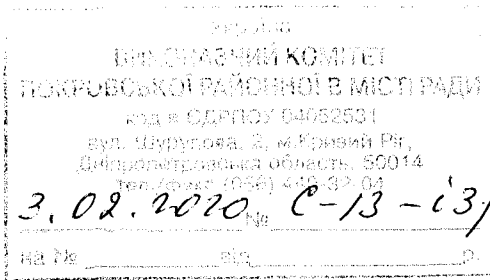 Україна
ВИКОНАВЧИЙ КОМІТЕТ
ПОКРОВСЬКОЇ РАЙОННОЇ В МІСТІ РАДИ
код в ЄДРПОУ 04052531
вул. Шурупова, 2, м.Кривий Ріг,
Дніпропетровська область, 50014
тел./факс (056)
3.02.2020 № С-13-із/
на № від р.